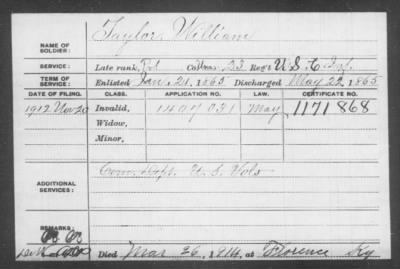 Taylor, William
NAME OF SOLDIER:
SERVICE: Late rank, Pvt Co. Unas. 23 Reg't U S C Inf.
TERM OF SERVICE: Enlisted Jan. 21, 1865 Discharged May 22, 1865
DATE OF FILING. CLASS. APPLICATION NO. LAW. CERTIFICATE NO.
1912 Nov 20 Invalid, 1407031 May 1171868
Widow,
Minor,
ADDITIONAL SERVICES: Com. Dept. U. S. Vols
REMARKS:
Died Mar 26, 1914, at Florence Ky